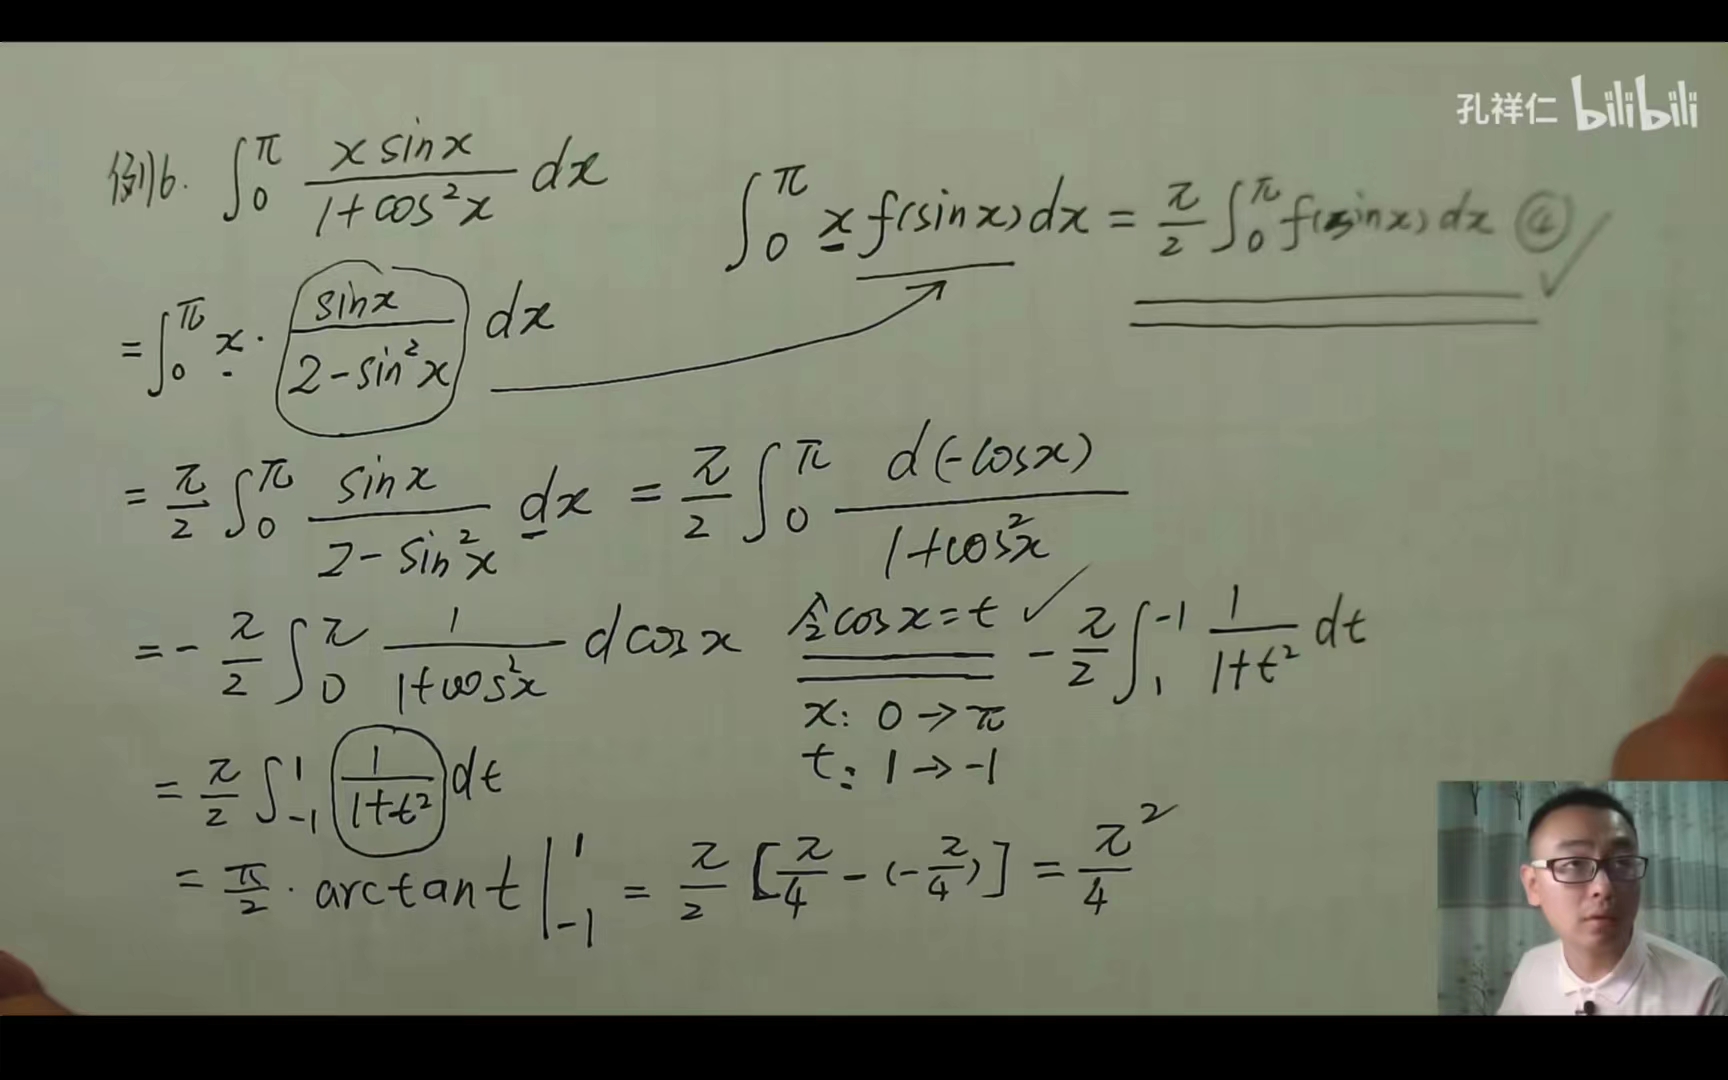 孔祥仁 bilibili
例6. ∫₀^π (x sinx)/(1+cos²x) dx
∫₀^π x f(sinx)dx = π/2 ∫₀^π f(sinx)dx ④ ✓
= ∫₀^π x · (sinx)/(2-sin²x) dx
= π/2 ∫₀^π (sinx)/(2-sin²x) dx = π/2 ∫₀^π d(-cosx)/(1+cos²x)
= - π/2 ∫₀^π 1/(1+cos²x) dcosx 令cosx=t ✓ - π/2 ∫₁^-1 1/(1+t²) dt
x: 0 → π
t: 1 → -1
= π/2 ∫₋₁^1 1/(1+t²) dt
= π/2 · arctant |₋₁^1 = π/2 [π/4 - (-π/4)] = π²/4